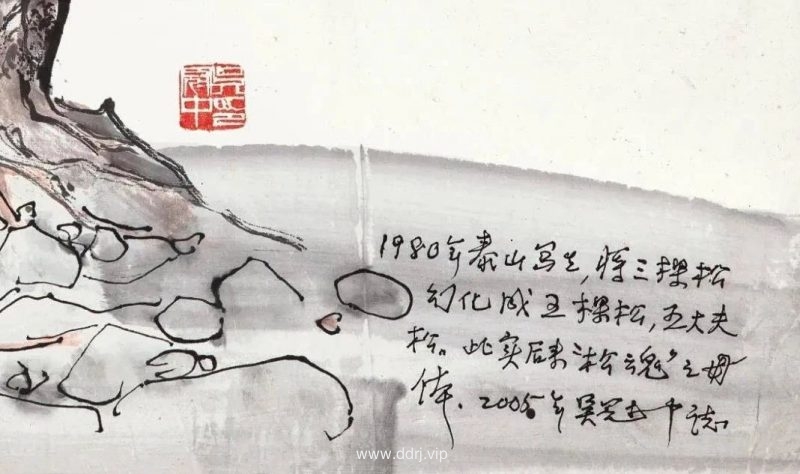 吴冠中印
1980年泰山写生,将三棵松
幻化成五棵松,五大夫
松。此实后来“松魂”之母
体。2005年吴冠中志
www.ddrj.vip